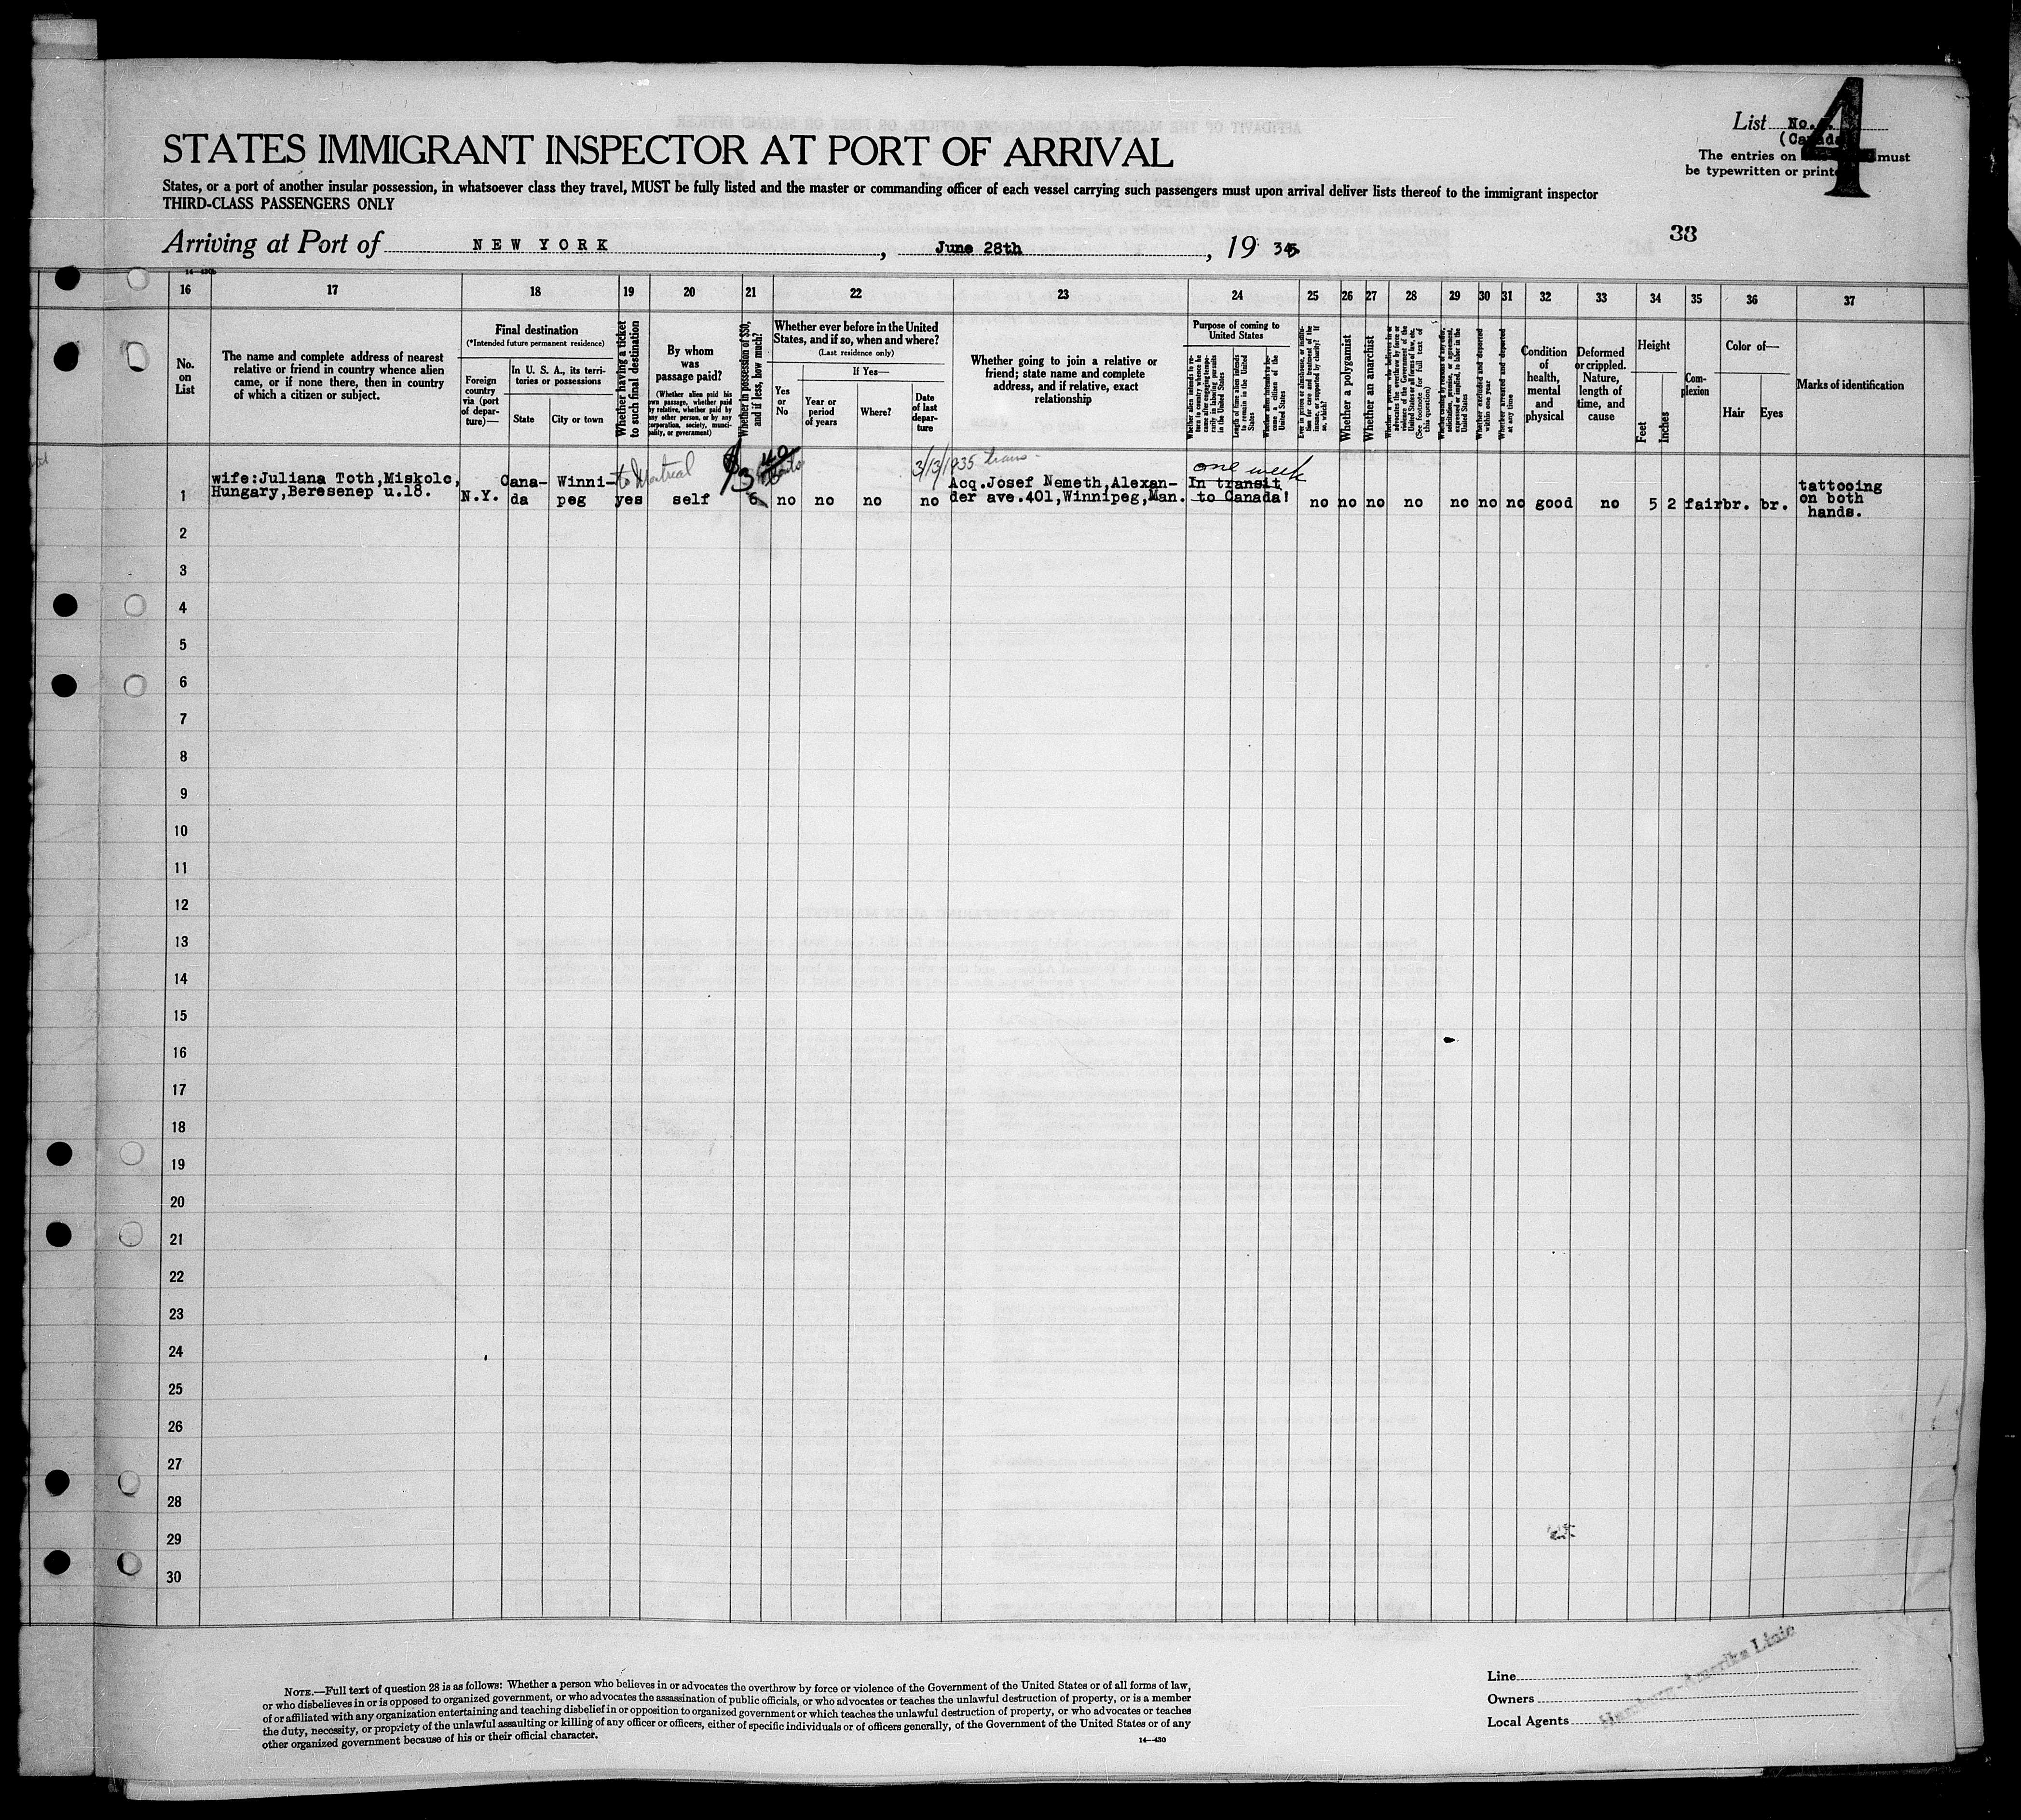 4
List No.
(Canada
The entries on must
be typewritten or printe
STATES IMMIGRANT INSPECTOR AT PORT OF ARRIVAL
States, or a port of another insular possession, in whatsoever class they travel, MUST be fully listed and the master or commanding officer of each vessel carrying such passengers must upon arrival deliver lists thereof to the immigrant inspector
THIRD-CLASS PASSENGERS ONLY
Arriving at Port of NEW YORK, June 28th, 19 35
33
14-430b
16 17 18 19 20 21 22 23 24 25 26 27 28 29 30 31 32 33 34 35 36 37
No.
on
List
The name and complete address of nearest
relative or friend in country whence alien
came, or if none there, then in country
of which a citizen or subject.
Final destination
(*Intended future permanent residence)
Foreign
country
via (port
of depar-
ture)—
In U. S. A., its terri-
tories or possessions
State
City or town
Whether having a ticket
to such final destination
By whom
was
passage paid?
(Whether alien paid his
own passage, whether paid
by relative, whether paid by
any other person, or by any
corporation, society, munici-
pality, or government)
Whether in possession of $50,
and if less, how much?
Whether ever before in the United
States, and if so, when and where?
(Last residence only)
Yes
or
No
If Yes—
Year or
period
of years
Where?
Date
of last
depar-
ture
Whether going to join a relative or
friend; state name and complete
address, and if relative, exact
relationship
Purpose of coming to
United States
Whether alien intends to re-
turn to country whence he
came after engaging tempo-
rarily in laboring pursuits
in the United States
Length of time alien intends
to remain in the United
States
Whether alien intends to be-
come a citizen of the
United States
Ever in prison or almshouse, or institu-
tion for care and treatment of the
insane, or supported by charity? If
so, which?
Whether a polygamist
Whether an anarchist
Whether a person who believes in or
advocates the overthrow by force or
violence of the Government of the
United States or all forms of law, etc.
(See footnote for full text of
this question)
Whether coming by reason of any offer,
solicitation, promise, or agreement,
expressed or implied, to labor in the
United States
Whether excluded and deported
within one year
Whether arrested and deported
at any time
Condition
of
health,
mental
and
physical
Deformed
or crippled.
Nature,
length of
time, and
cause
Height
Feet
Inches
Com-
plexion
Color of—
Hair
Eyes
Marks of identification
to Montreal
$3
3/13/1935 trans-
one week
1 wife:Juliana Toth,Miskolc,
Hungary,Beresenep u.18.
N.Y.
Cana-
da
Winni-
peg
yes self no no no no
Acq.Josef Nemeth,Alexan-
der ave.401,Winnipeg,Man.
In transit
to Canada!
no no no no no no no good no 5 2 fair br. br.
tattooing
on both
hands.
2
3
4
5
6
7
8
9
10
11
12
13
14
15
16
17
18
19
20
21
22
23
24
25
26
27
28
29
30
NOTE.—Full text of question 28 is as follows: Whether a person who believes in or advocates the overthrow by force or violence of the Government of the United States or of all forms of law,
or who disbelieves in or is opposed to organized government, or who advocates the assassination of public officials, or who advocates or teaches the unlawful destruction of property, or is a member
of or affiliated with any organization entertaining and teaching disbelief in or opposition to organized government or which teaches the unlawful destruction of property, or who advocates or teaches
the duty, necessity, or propriety of the unlawful assaulting or killing of any officer or officers, either of specific individuals or of officers generally, of the Government of the United States or of any
other organized government because of his or their official character.
14-430
Line
Owners
Local Agents
Hamburg-Amerika Linie